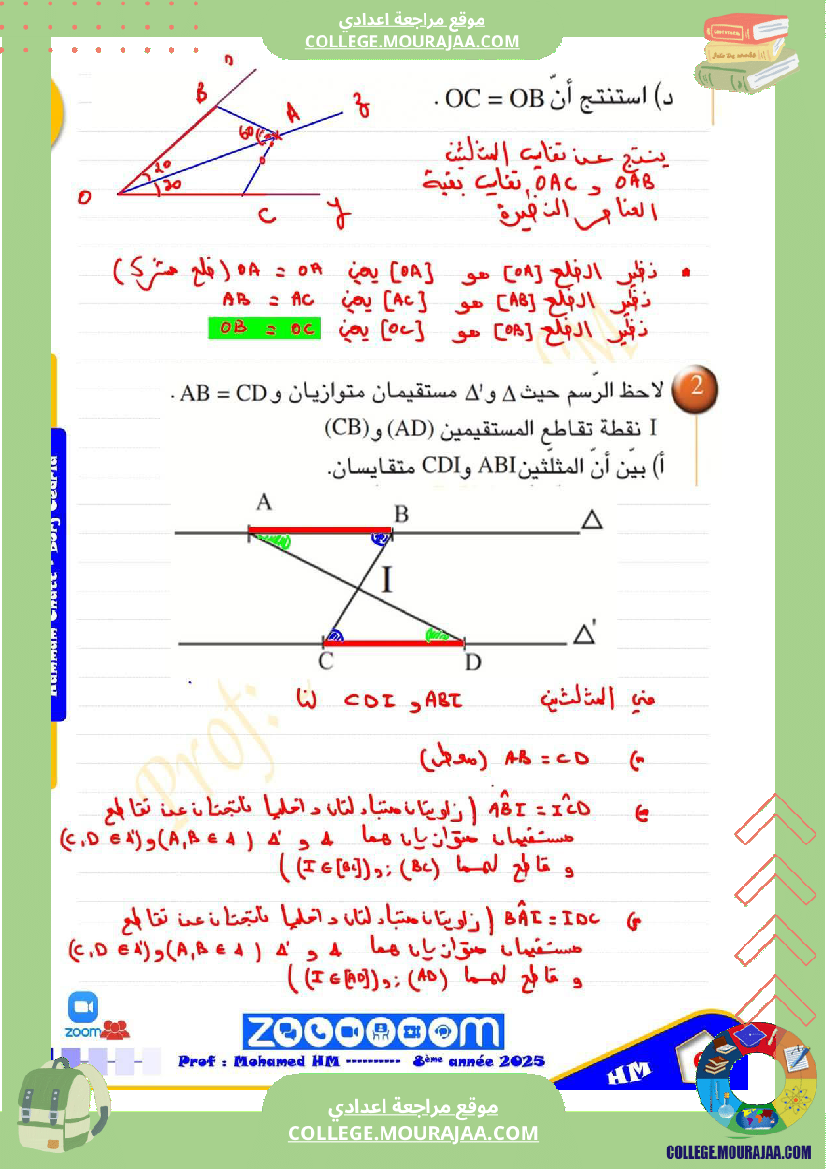 موقع مراجعة اعدادي
COLLEGE.MOURAJAA.COM
د) استنتج أنّ OC = OB .
B
A
z
60
20
20
O
C
y
ينتج عن تقايس المثلثين
OAB و OAC, تقايس بقية
العناصر النظيرة
• نظير الضلع [OA] هو [OA] يعني OA = OA (ضلع مشترك)
نظير الضلع [AB] هو [AC] يعني AB = AC
نظير الضلع [OB] هو [OC] يعني OB = OC
2
لاحظ الرّسم حيث Δ و'Δ مستقيمان متوازيان و AB = CD .
I نقطة تقاطع المستقيمين (AD) و(CB)
أ) بيّن أنّ المثلّثين ABI و CDI متقايسان.
A
B
Δ
I
Δ'
C
D
Prof:
في المثلثين ABI و CDI لنا
AB = CD (معطى)
AB̂I = IĈD (زاويتان متبادلتان داخليا ناتجتان عن تقاطع
مستقيمان متوازيان هما Δ و Δ' (A,B ∈ Δ) و (C,D ∈ Δ')
و قاطع لهما (BC) و (I ∈ [BC]))
BÂI = IDC (زاويتان متبادلتان داخليا ناتجتان عن تقاطع
مستقيمان متوازيان هما Δ و Δ' (A,B ∈ Δ) و (C,D ∈ Δ')
و قاطع لهما (AD) و (I ∈ [AD]))
zoom
zoooooom
Prof : Mohamed HM ---------- 8ème année 2025
HM
موقع مراجعة اعدادي
COLLEGE.MOURAJAA.COM
COLLEGE.MOURAJAA.COM